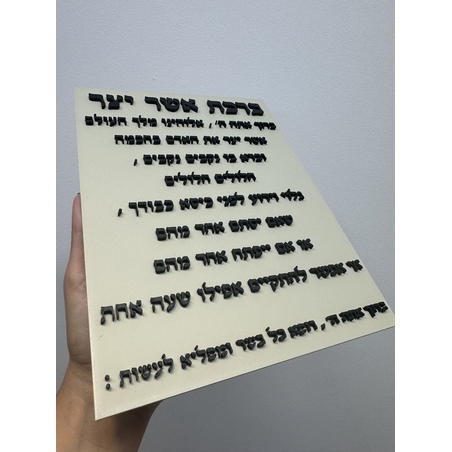 ברכת אשר יצר
ברוך אתה ה', אלוהינו מלך העולם
אשר יצר את האדם בחכמה
וברא בו נקבים נקבים,
חלולים חלולים
גלוי וידוע לפני כיסא כבודך,
שאם יסתם אחד מהם
או אם ייפתח אחד מהם
אי אפשר להתקיים אפילו שעה אחת
ברוך אתה ה', רופא כל בשר ומפליא לעשות: